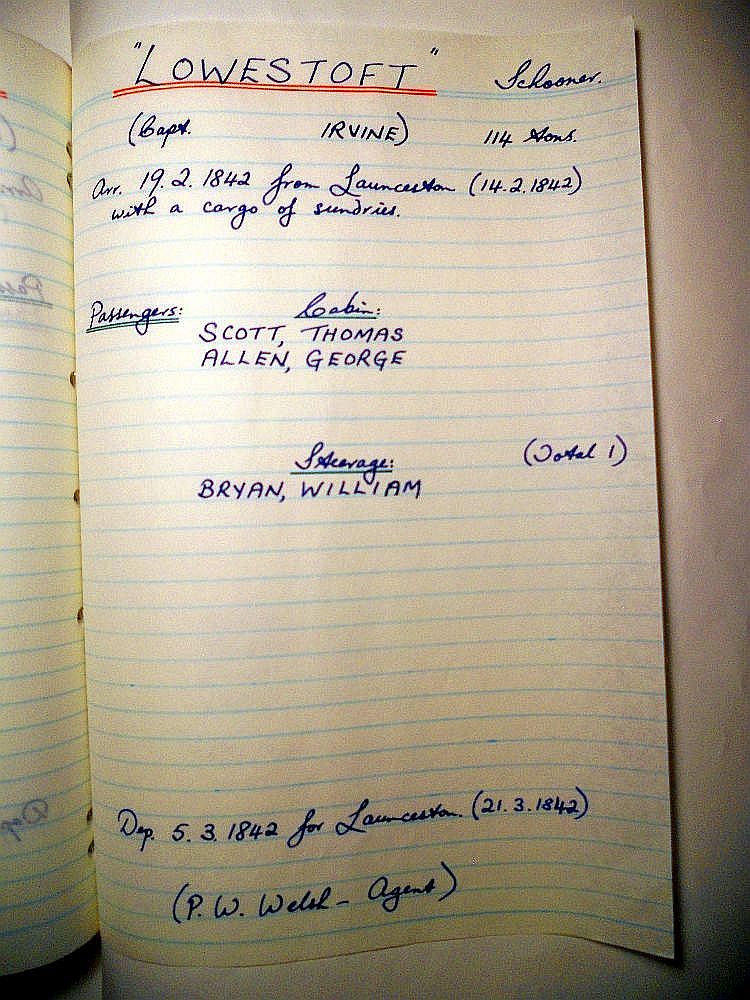 "LOWESTOFT" Schooner.
(Capt. IRVINE) 114 tons.
Arr. 19.2.1842 from Launceston (14.2.1842)
with a cargo of sundries.
Passengers: Cabin:
SCOTT, THOMAS
ALLEN, GEORGE
Steerage: (Total 1)
BRYAN, WILLIAM
Dep. 5.3.1842 for Launceston. (21.3.1842)
(P. W. Welsh - Agent)